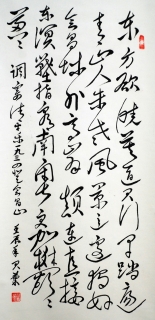 东方欲晓莫道君行早踏遍
青山人未老风景这边独好
会昌城外高峰颠连直接
东溟战士指看南粤更加郁郁
葱葱 调寄清平乐 会昌山
壬辰年